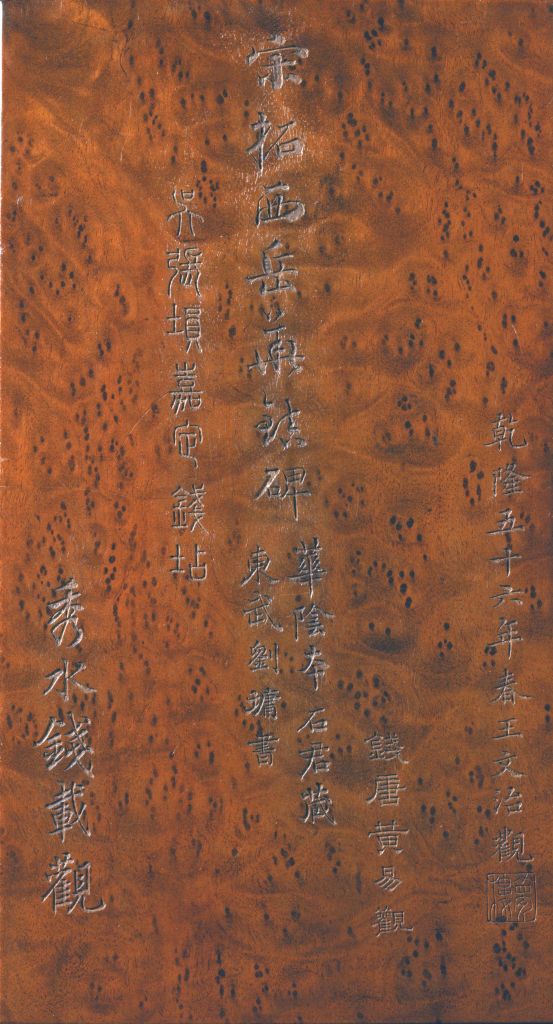 乾隆五十六年春王文治觀
錢唐黃易觀
宋拓西岳華鎮碑
華陰本石君藏
東武劉墉書
吳張塤嘉定錢坫
秀水錢載觀